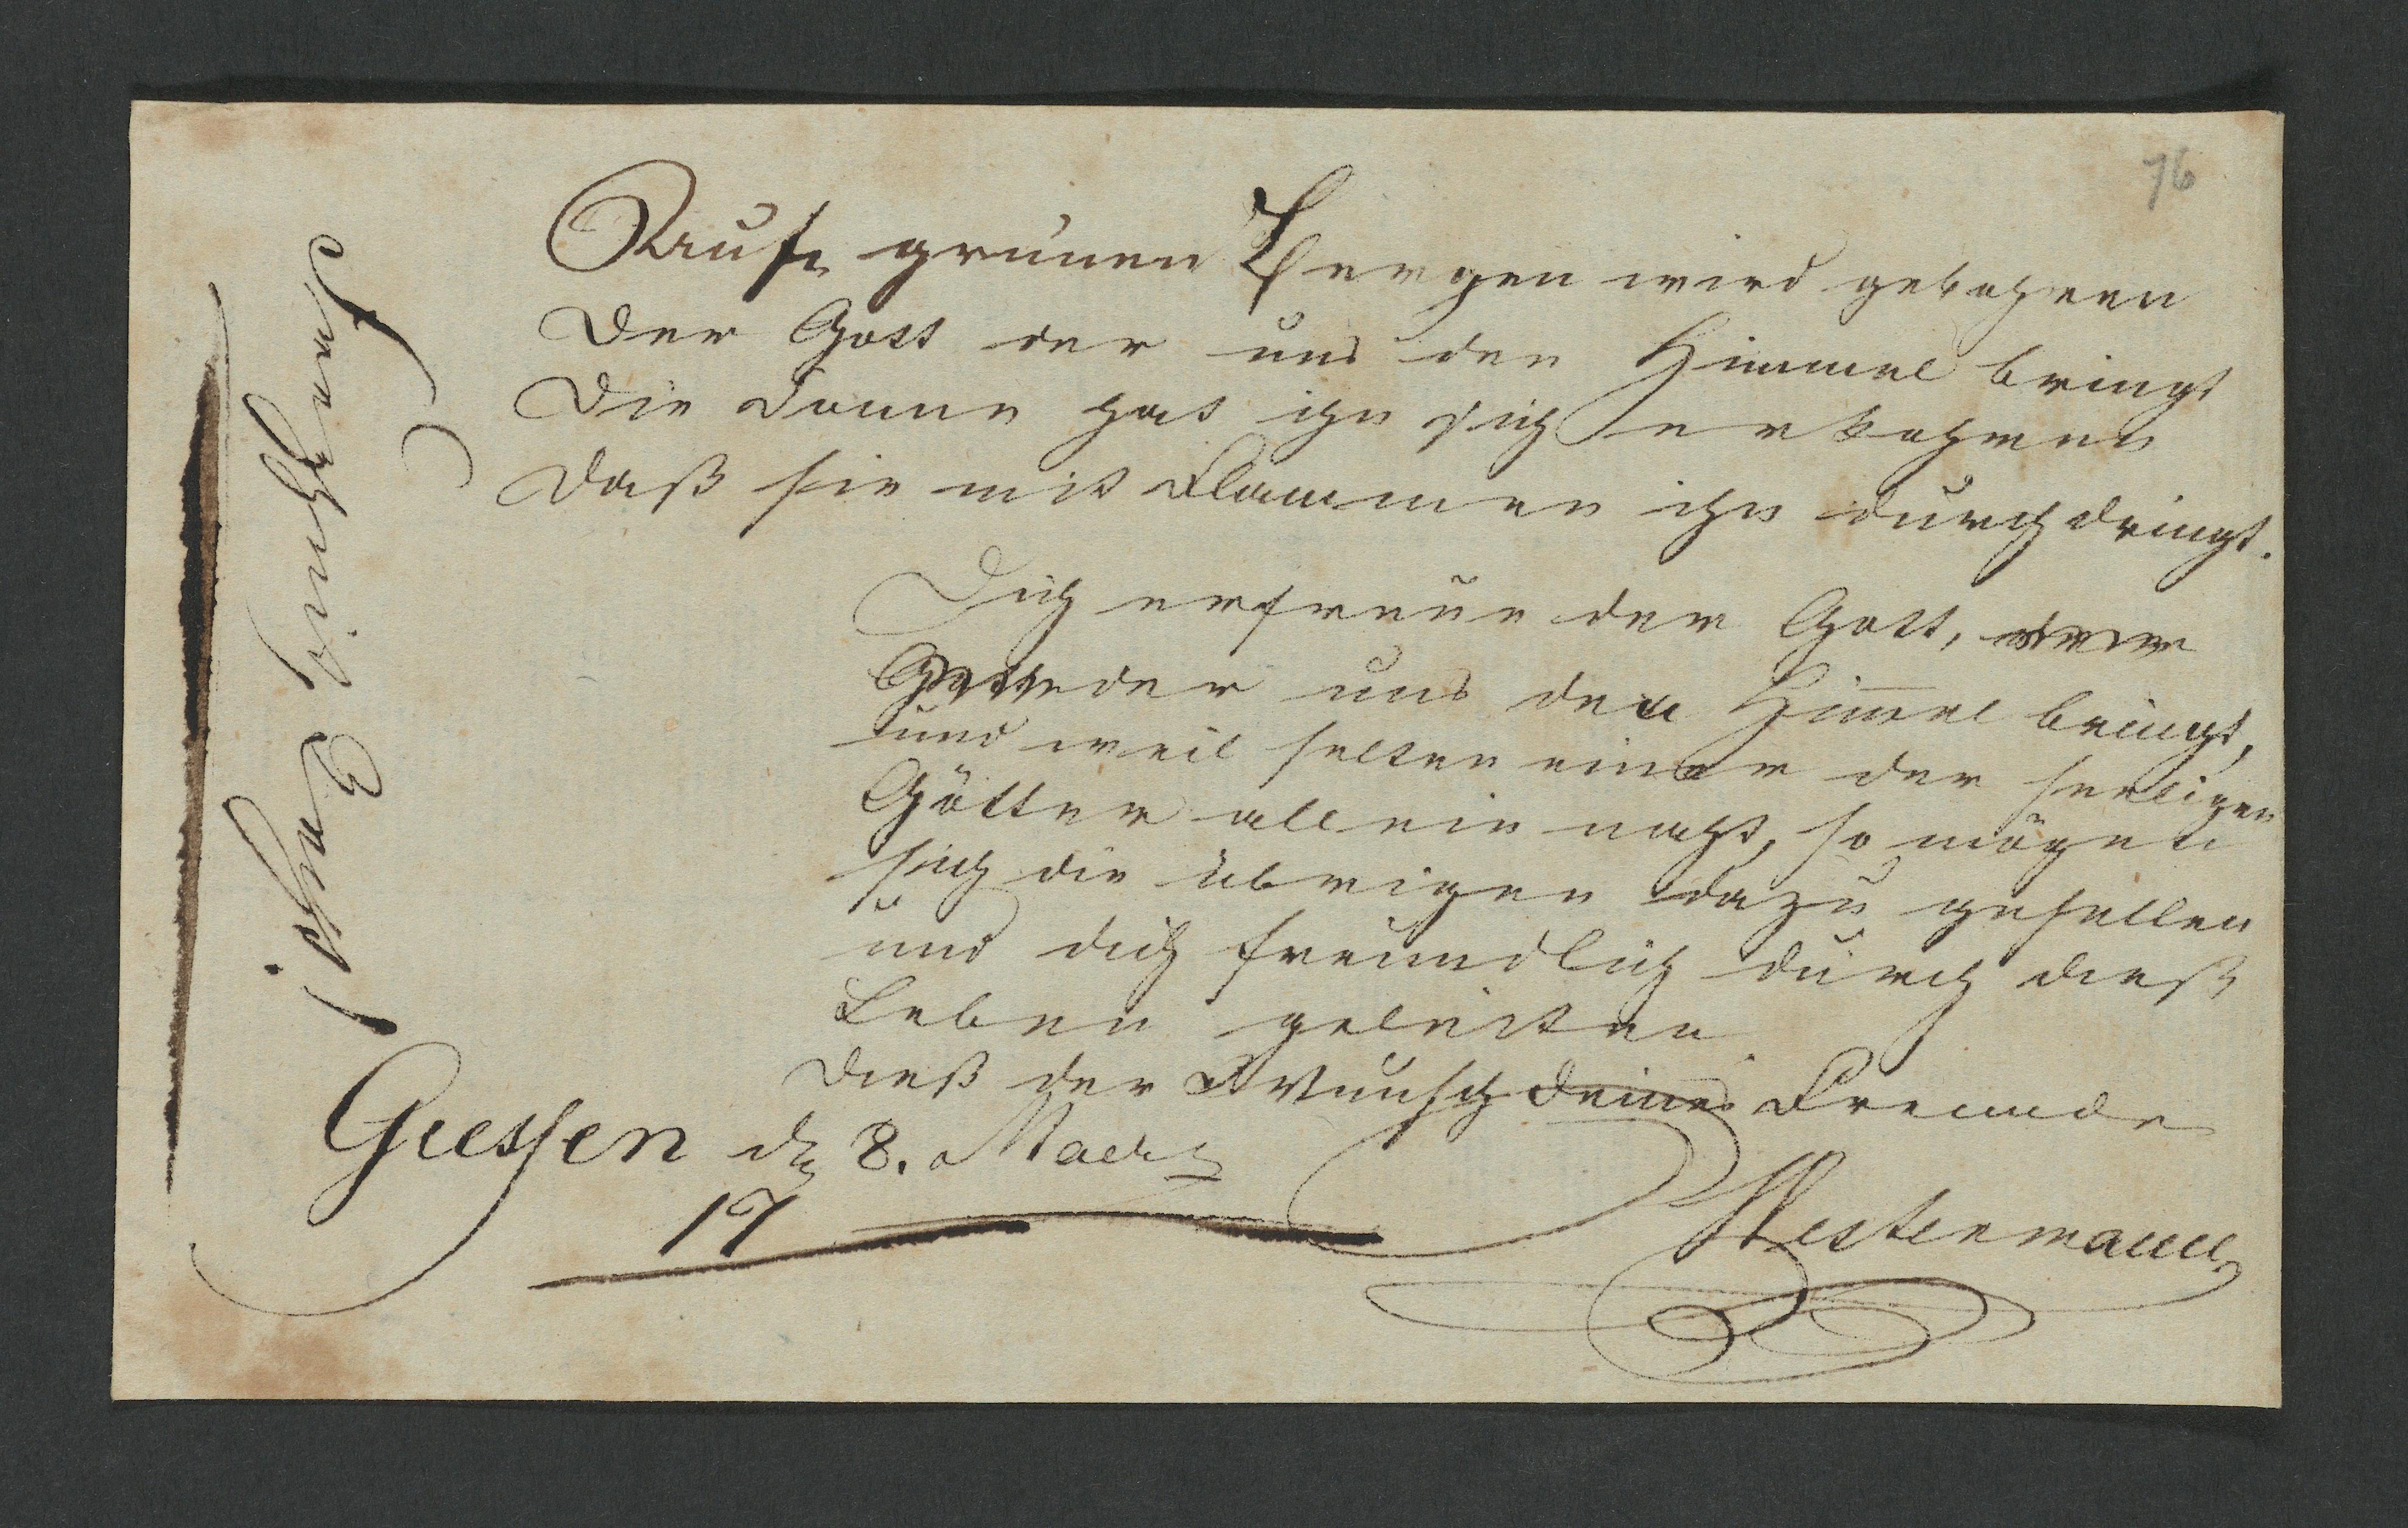 76
Auf grünen Bergen wird gebohren
Der Gott der uns den Himmel bringt
Die Sonne hat ihn sich erkohren
Daß sie mit Flammen ihn durchdringt.
Dich erfreue der Gott,
der uns den Himmel bringt,
und weil selten einer der seeligen
Götter allein naht, so mögen
sich die übrigen dazu gesellen
und dich freundlich durch dieß
Leben geleiten
Dieß der Wunsch deines Freunde
Giessen d 8. Maerz
17
Westermann